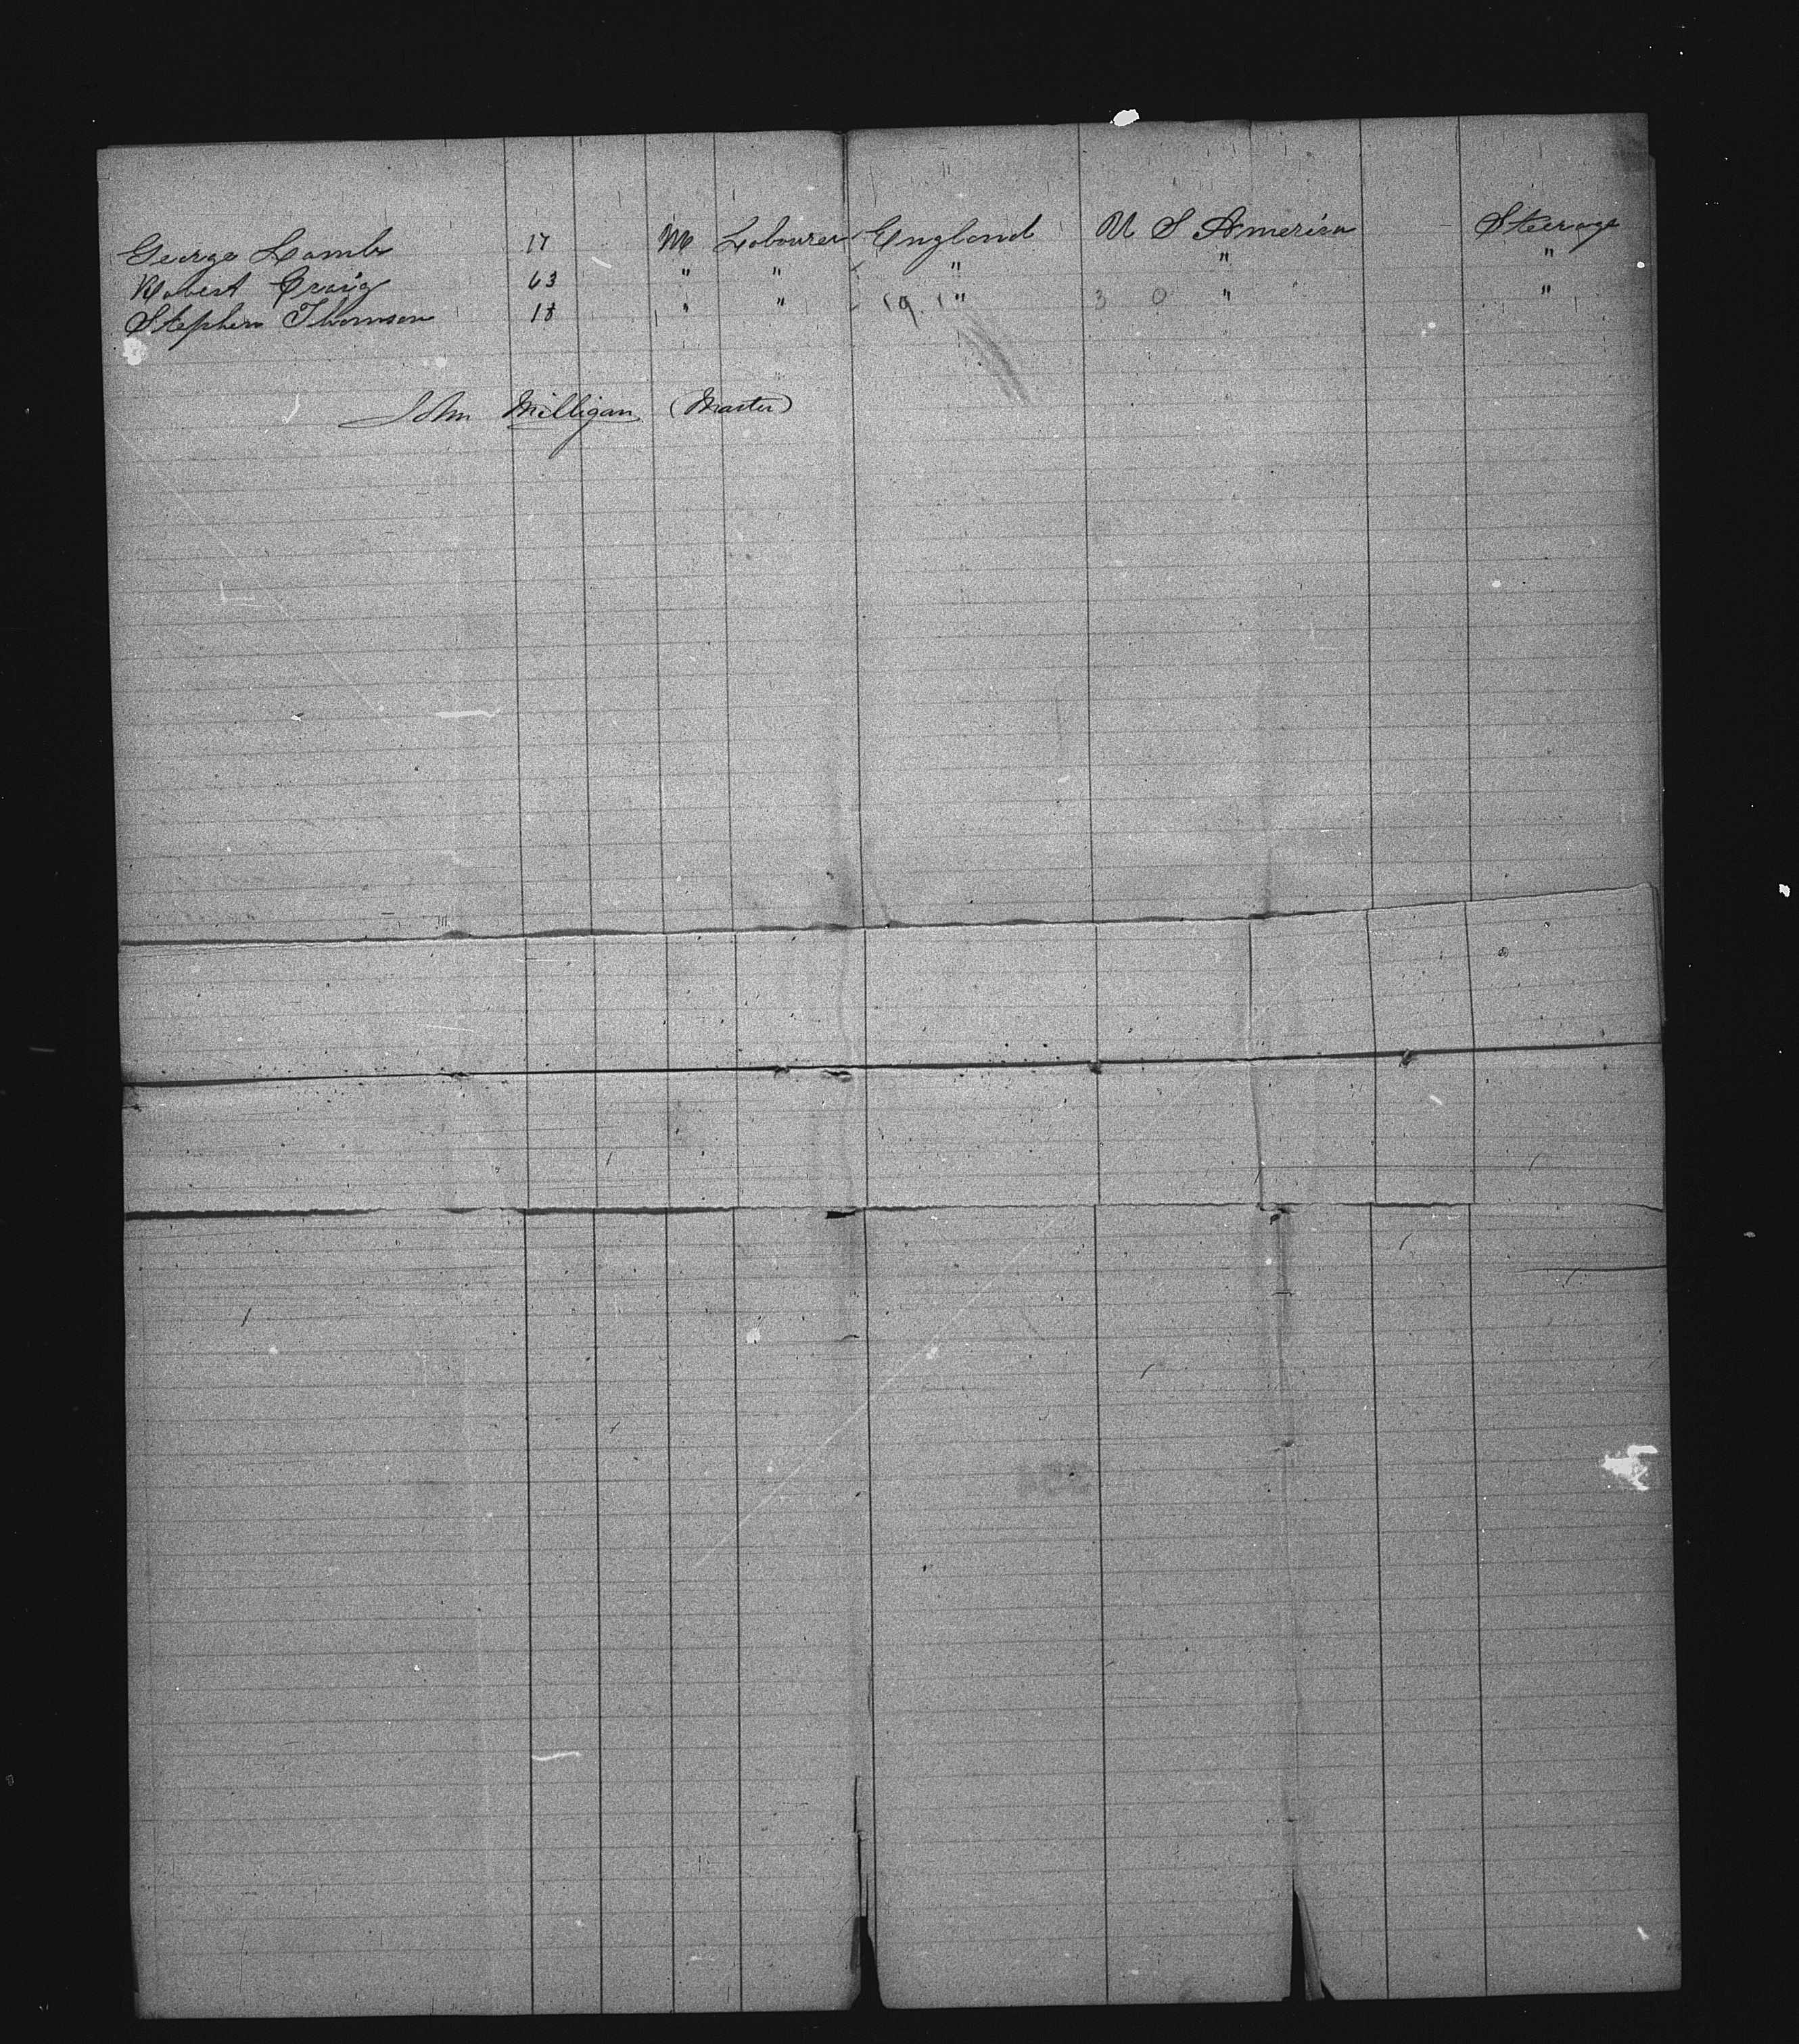 George Lamb 17 M Labourer England U S America Steerage
Robert Craig 63 " " " " "
Stephen Thomson 18 " " " " "
19 1 3 0
John Milligan (Master)